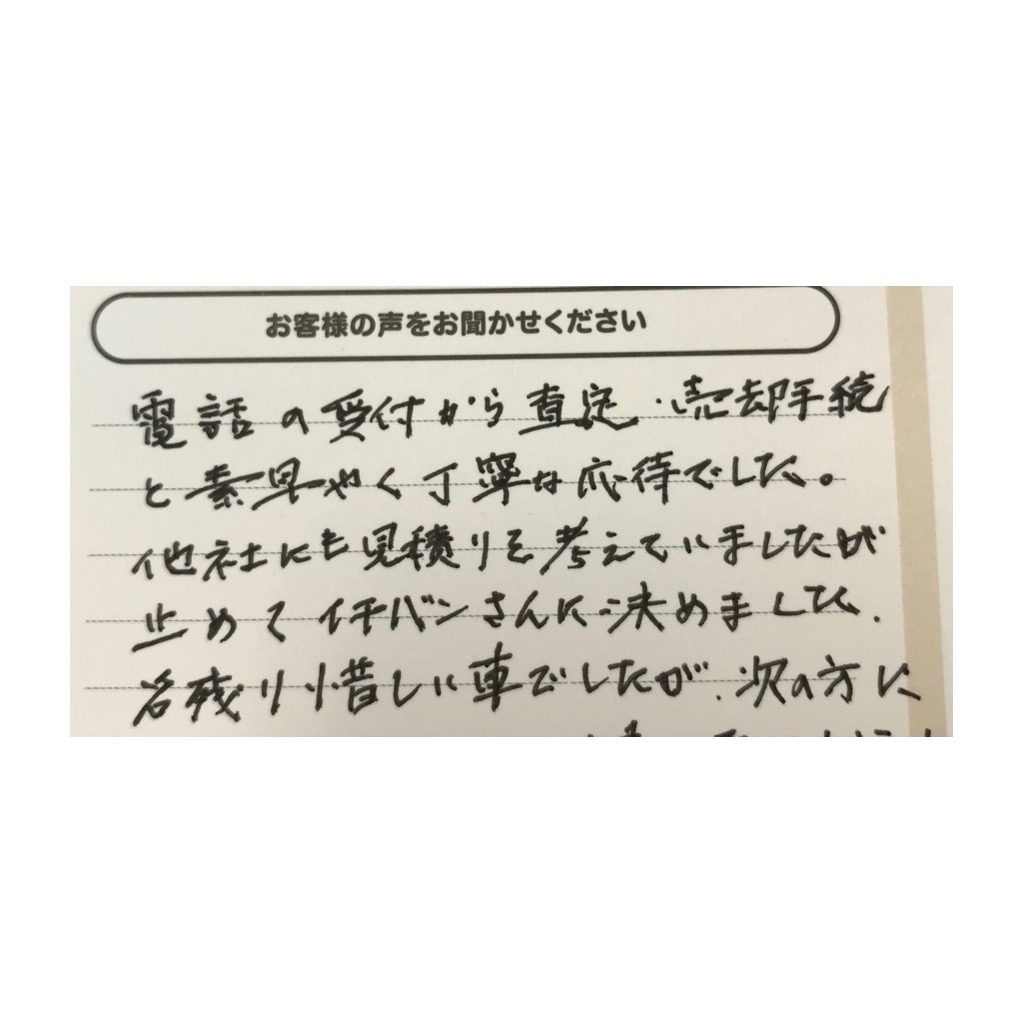 お客様の声をお聞かせください
電話の受付から査定・売却手続
と素早やく丁寧な応待でした。
他社にも見積りを考えていましたが
止めてイチバンさんに決めました.
名残り惜しい車でしたが、次の方に